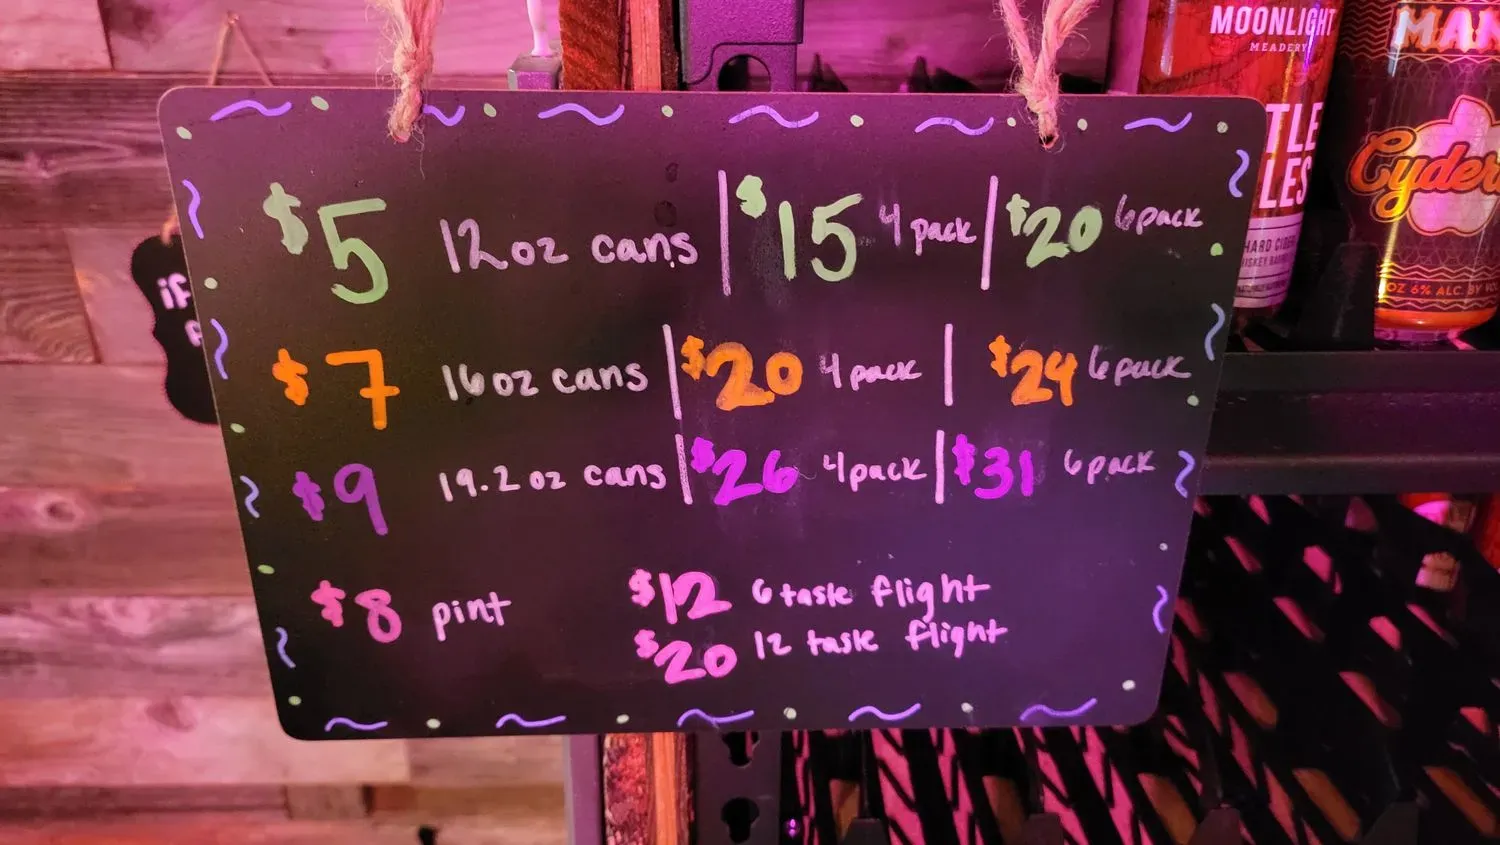 $5 12oz cans | $15 4 pack | $20 6pack
$7 16oz cans | $20 4 pack | $24 6pack
$9 19.2oz cans | $26 4pack | $31 6pack
$8 pint
$12 6 taste flight
$20 12 taste flight
if
MOONLIGHT
MEADERY
TLE
LES
HARD CIDER
MAN
Cyder
OZ 6% ALC. BY VOL